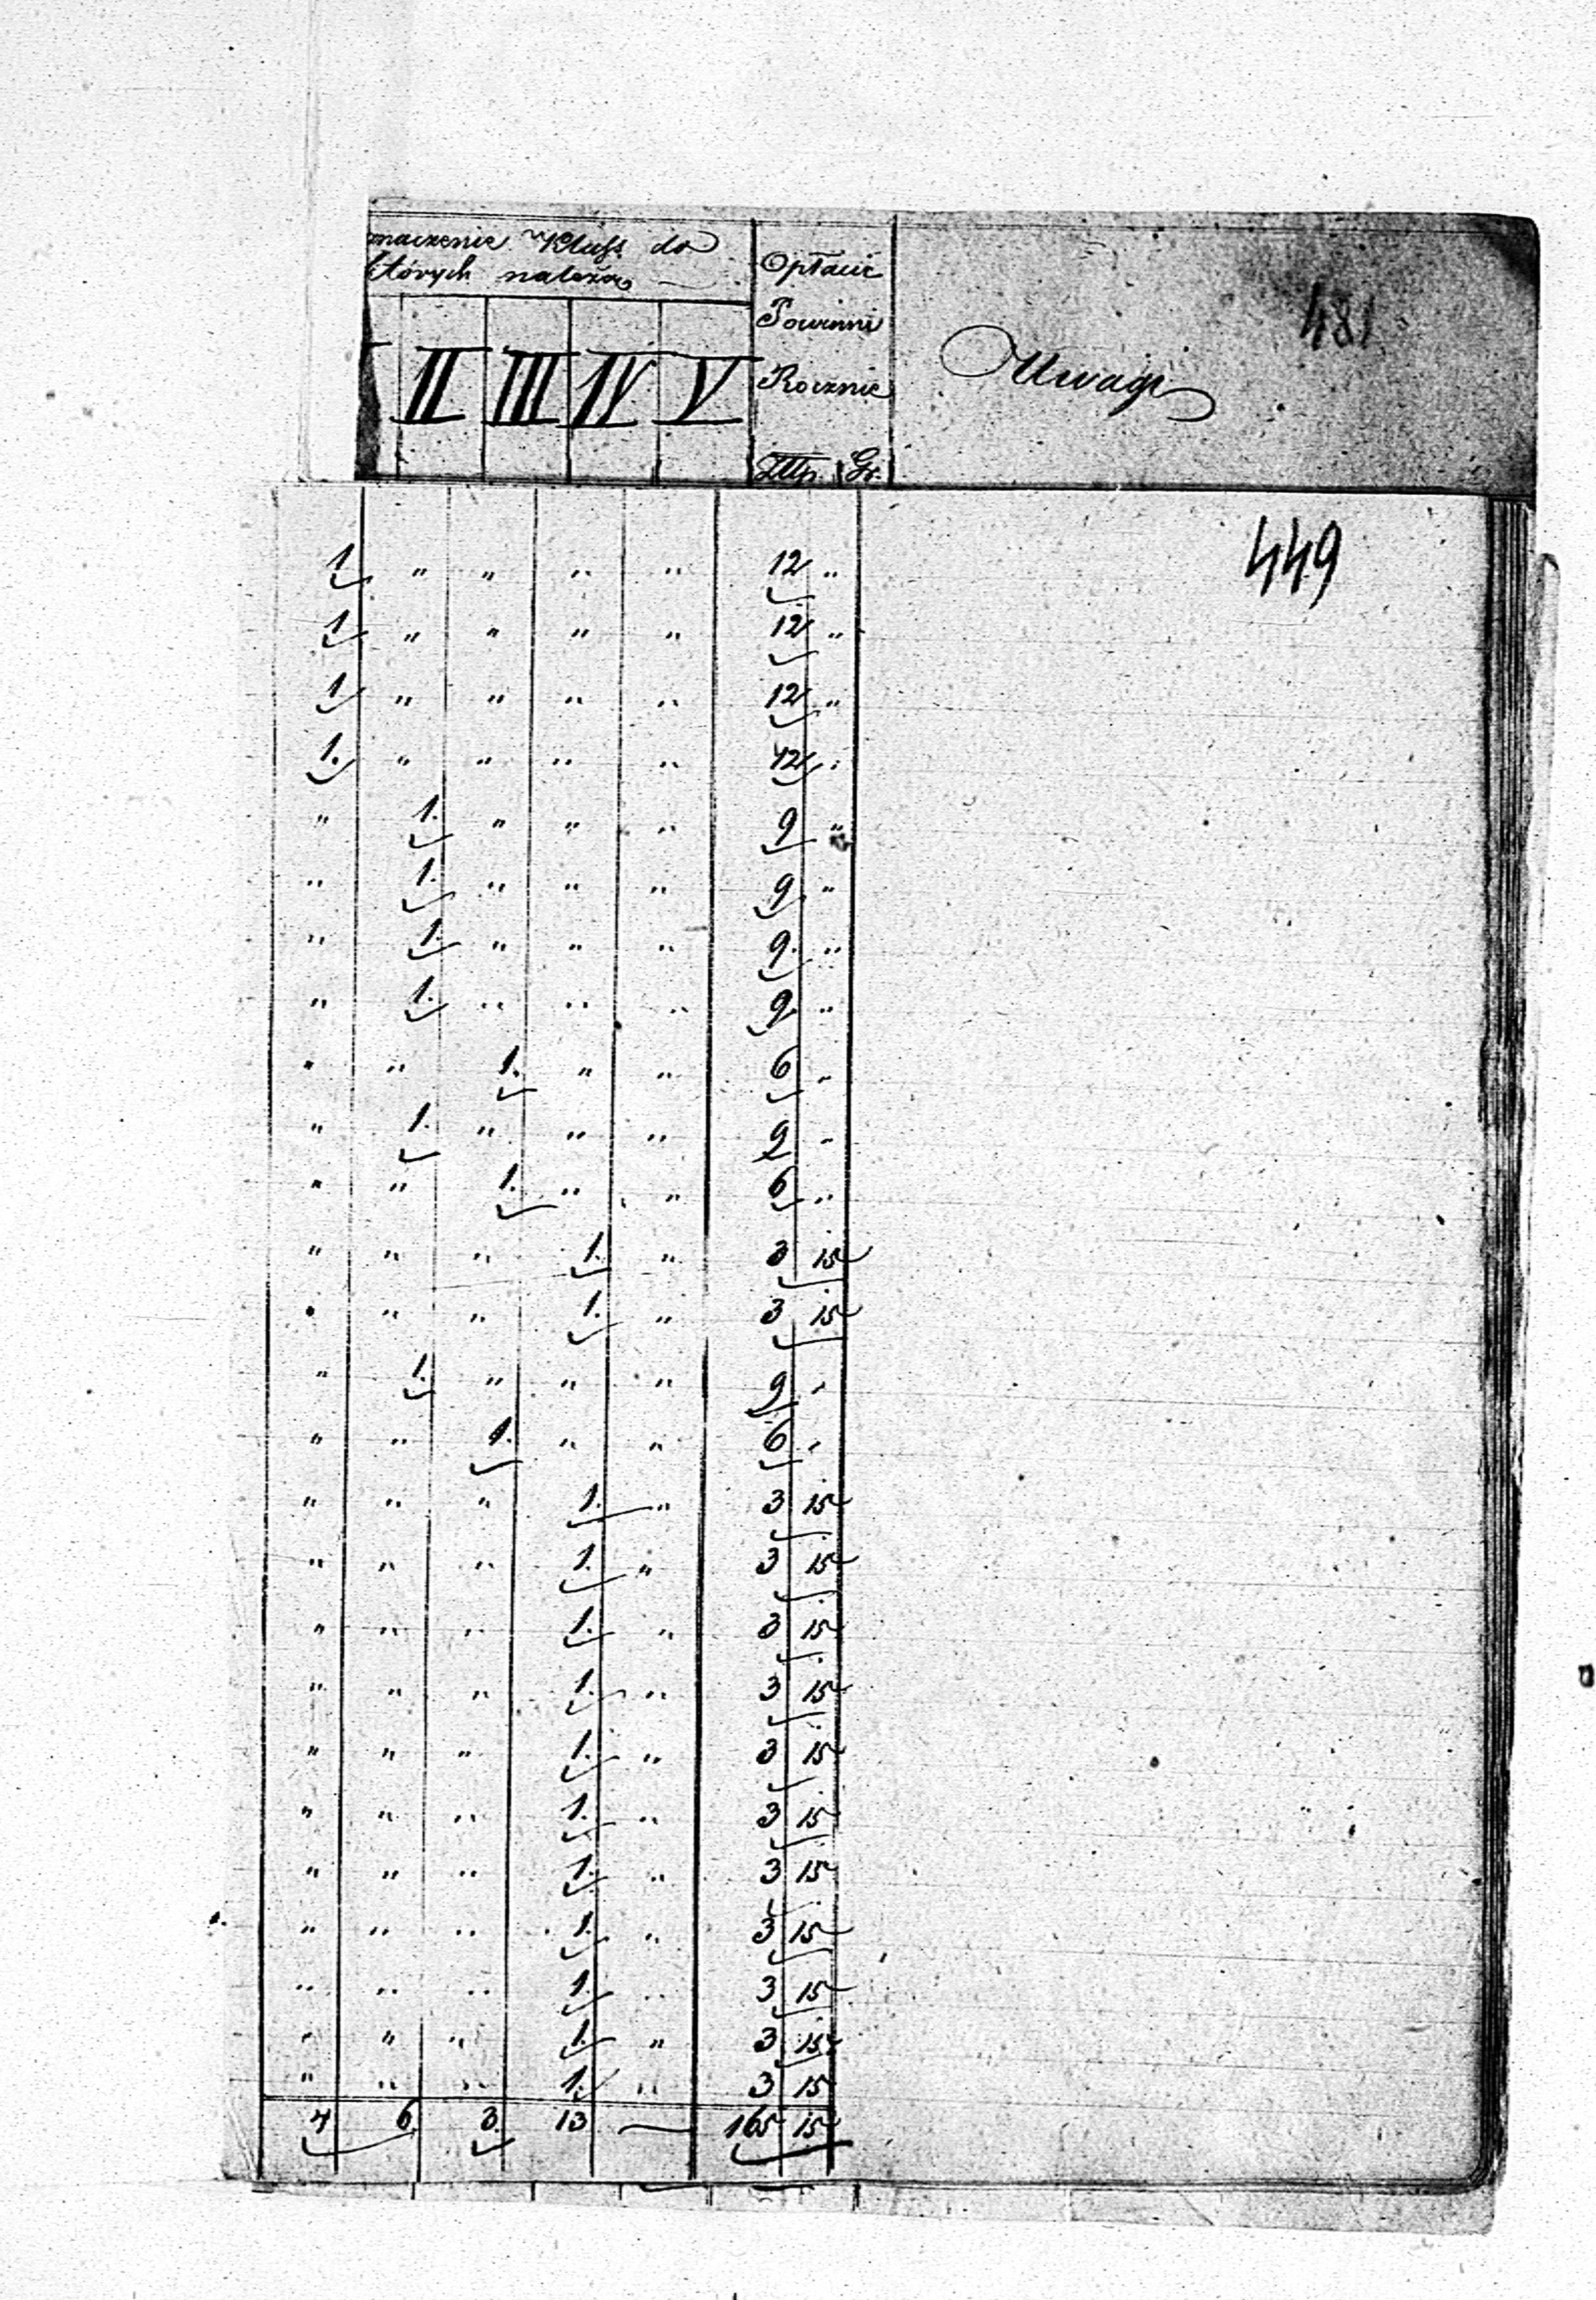 znaczenie Klass do
których należą
Opłacić
Powinni
Rocznie
Uwagi
481
II III IV V
Złlp. Gr.
449
1. " " " " 12 "
1. " " " " 12 "
1. " " " " 12 "
1. " " " " 12 "
" 1. " " " 9 "
" 1. " " " 9 "
" 1. " " " 9. "
" 1. " " " 9. "
" " 1. " " 6 "
" 1. " " " 9 "
" " 1. " " 6 "
" " " 1. " 3 15
" " " 1. " 3 15
" 1. " " " 9 "
" " 1. " " 6 "
" " " 1. " 3 15
" " " 1. " 3 15
" " " 1. " 3 15
" " " 1. " 3 15
" " " 1. " 3 15
" " " 1. " 3 15
" " " 1. " 3 15
" " " 1. " 3 15
" " " 1. " 3 15
" " " 1. " 3 15
" " " 1. " 3 15
4 6 3. 13 — 165 15